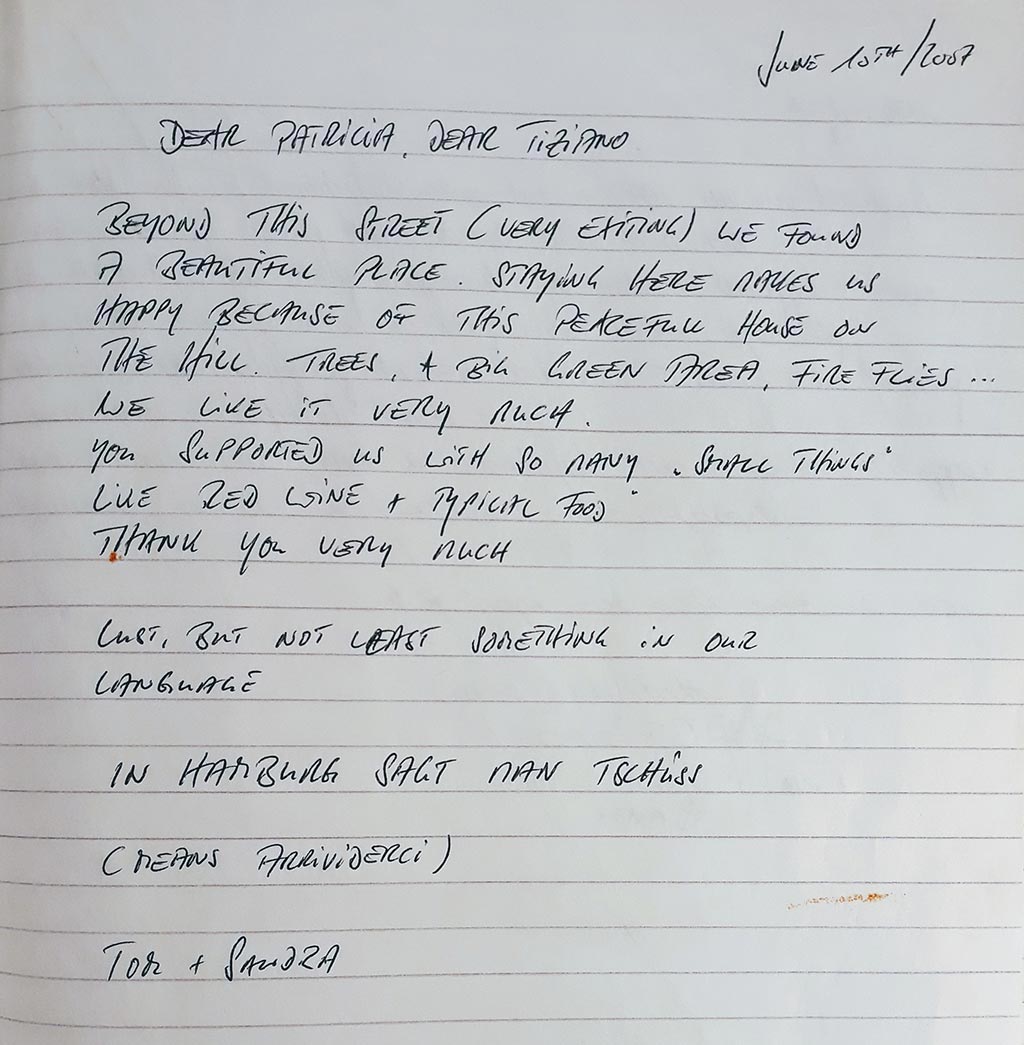 JUNE 10TH/2007
DEAR PATRICIA, DEAR TIZIANO
BEYOND THIS STREET (VERY EXITING) WE FOUND
A BEAUTIFUL PLACE. STAYING HERE MAKES US
HAPPY BECAUSE OF THIS PEACEFULL HOUSE ON
THE HILL. TREES, A BIG GREEN AREA, FIRE FLIES ...
WE LIKE IT VERY MUCH.
YOU SUPPORTED US WITH SO MANY "SMALL THINGS"
LIKE RED WINE + TYPICAL FOOD"
THANK YOU VERY MUCH
LAST, BUT NOT LEAST SOMETHING IN OUR
LANGUAGE
IN HAMBURG SAGT MAN TSCHÜSS
(MEANS ARRIVIDERCI)
TOM + SANDRA